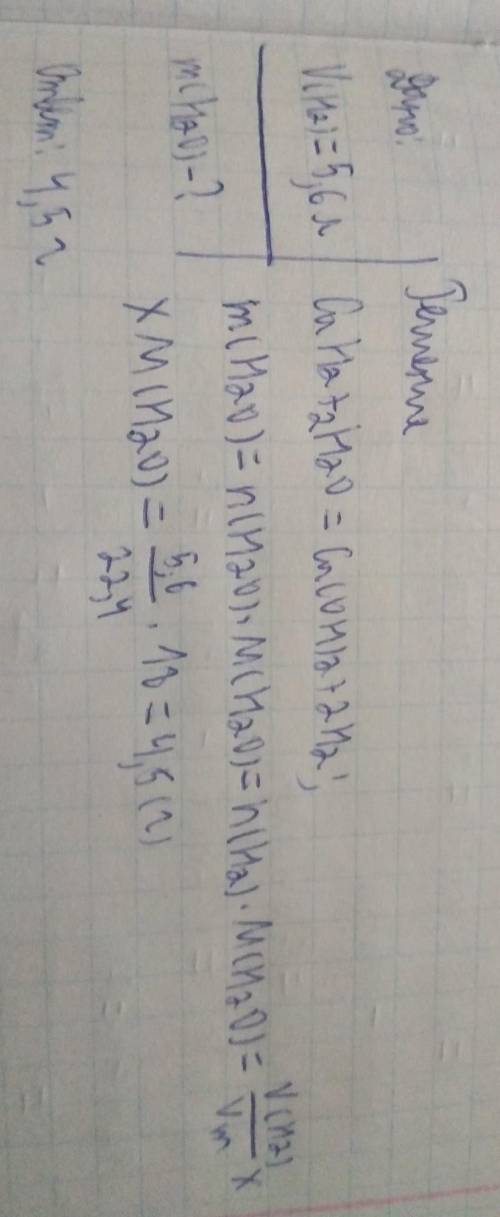 Дано:
V(H2) = 5,6 л
m(H2O) - ?
Решение
CaH2 + 2H2O = Ca(OH)2 + 2H2;
m(H2O) = n(H2O) · M(H2O) = n(H2) · M(H2O) = V(H2)/Vm ×
× M(H2O) = 5,6/22,4 · 18 = 4,5 (г)
Ответ: 4,5 г